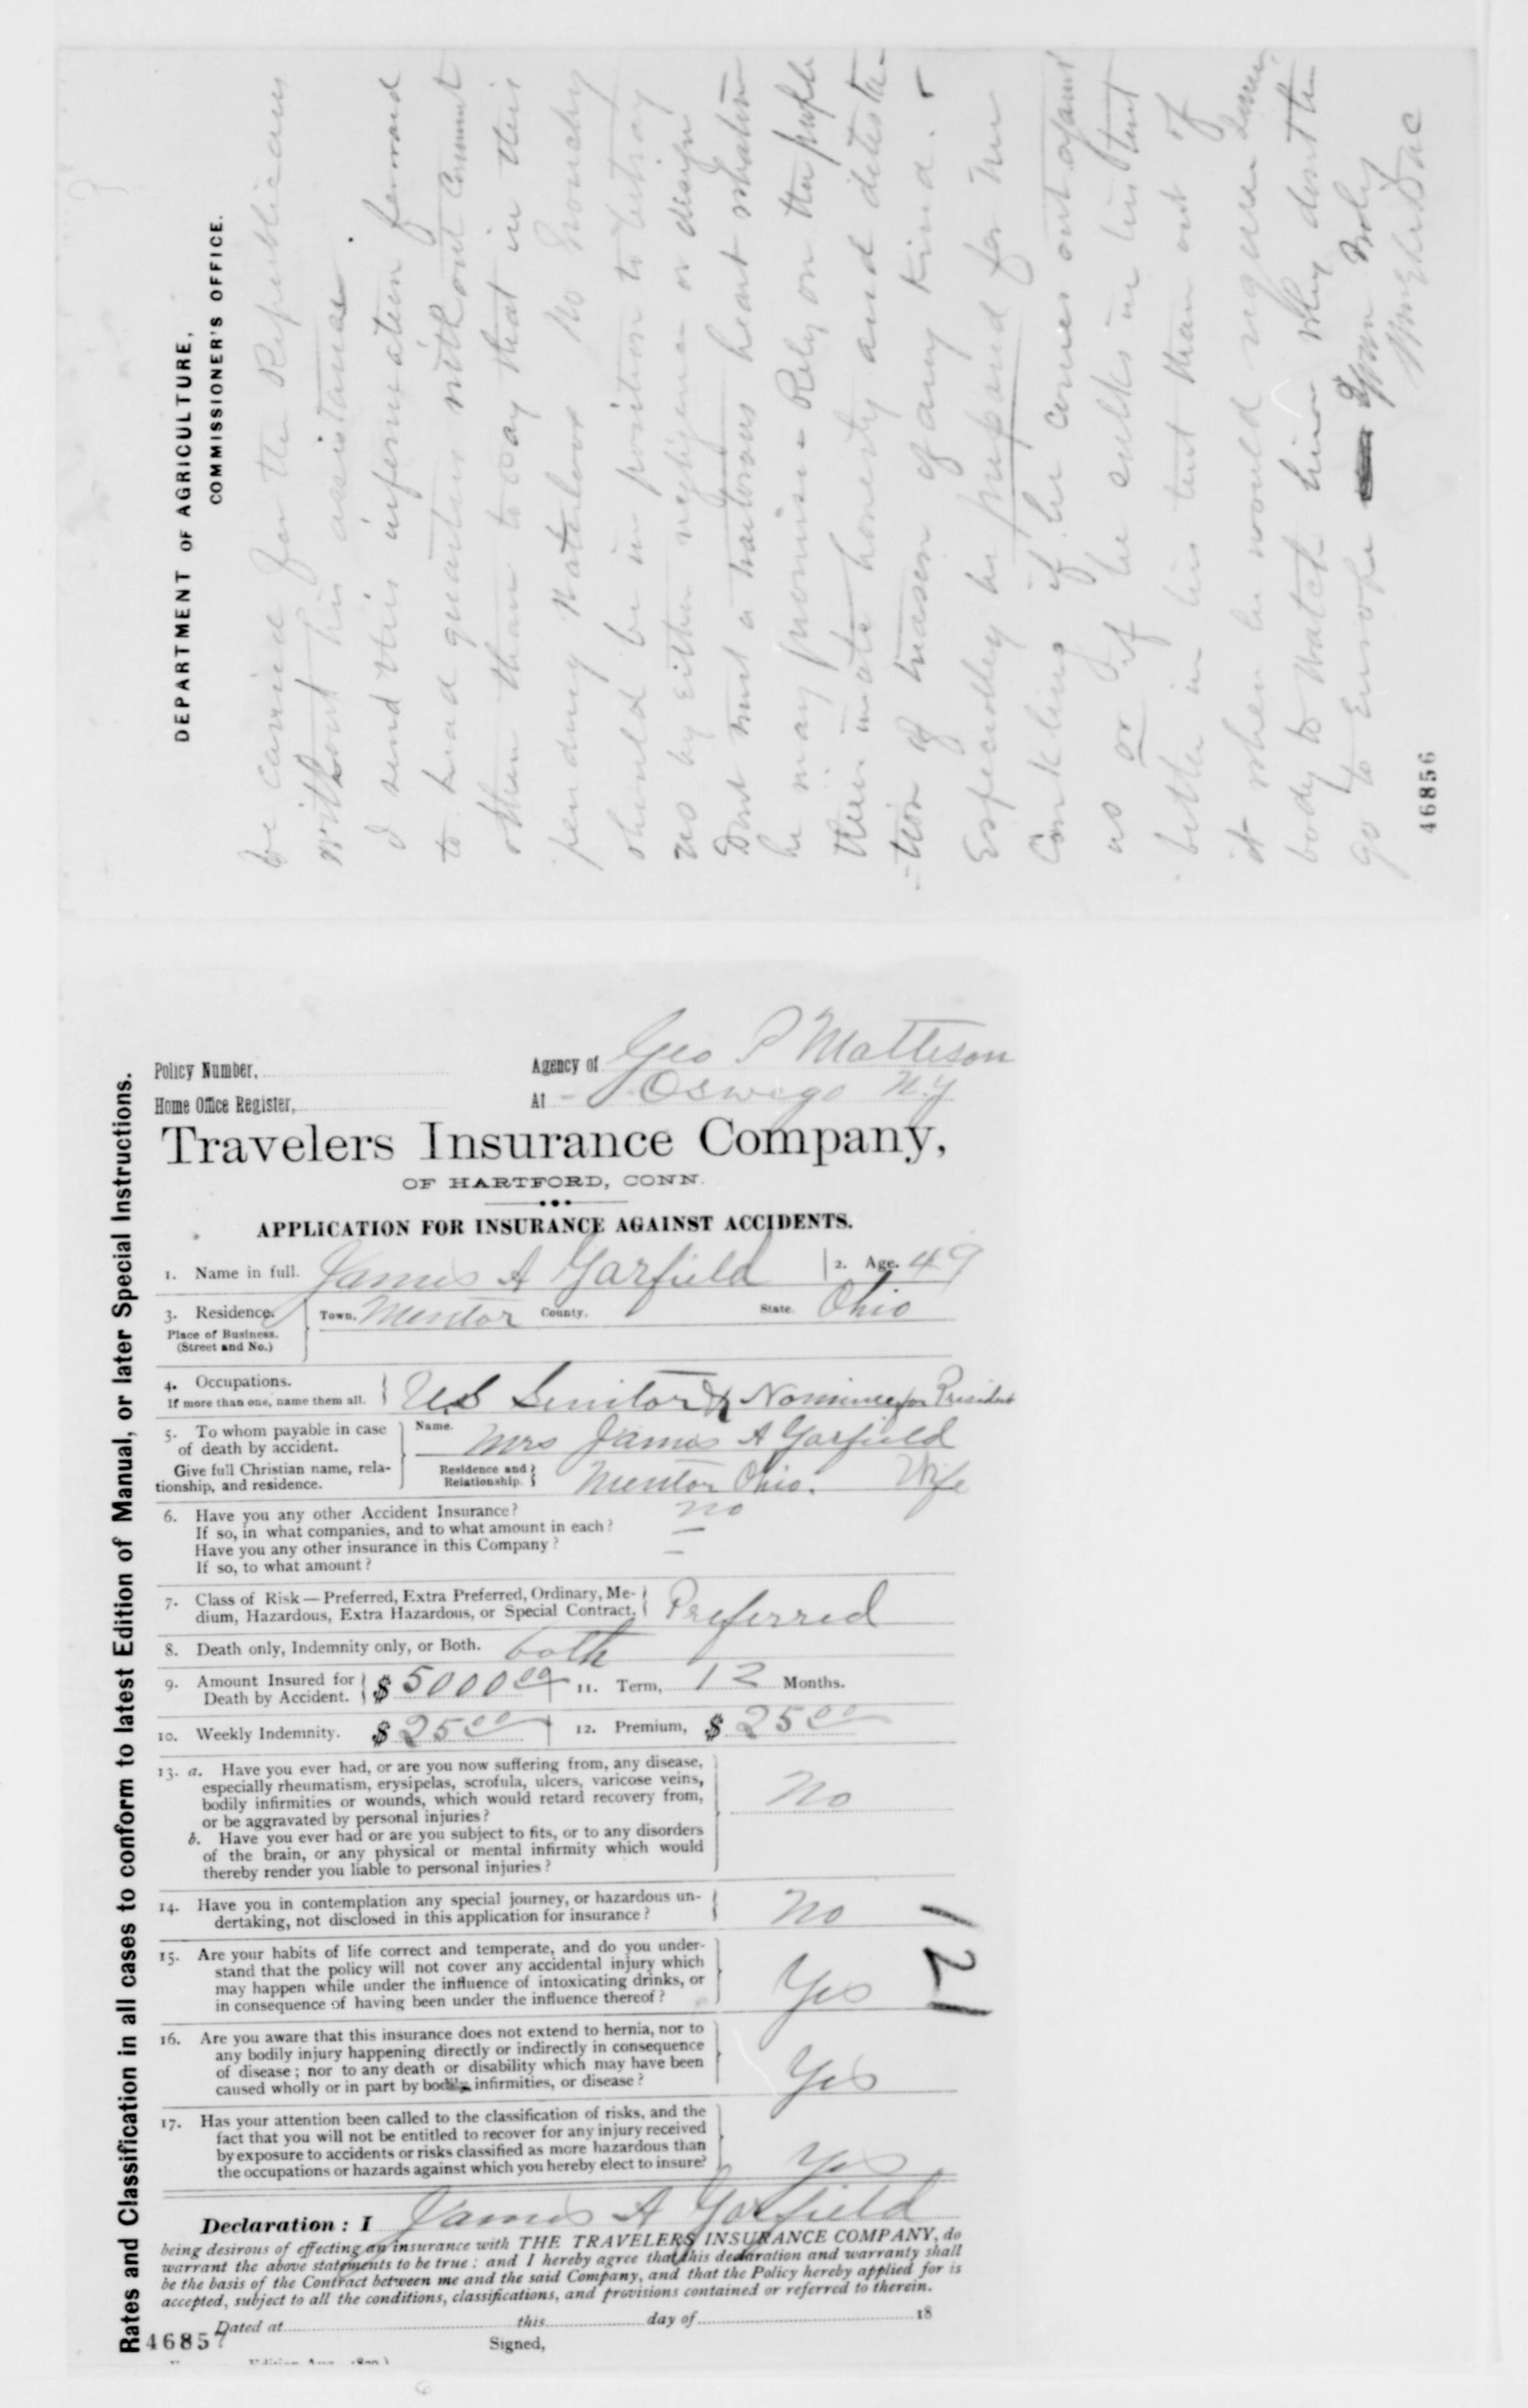 DEPARTMENT OF AGRICULTURE,
COMMISSIONER'S OFFICE.
be carried for the Republicans
without his assistance.
I send this information forward
to head quarters without comment
other than to say that in this
pending Waterloo no Grouchy
should be in position to betray
us by either negligence or design
Dont trust a traitorous heart whatever
he may promise – Rely on the people
their innate honesty and detesta-
-tion of treason of any kind.
Especially be prepared for Mr
Conkling if he comes out against
us or if he sulks in his tent
better in his tent than out of
it when he would require some
body to watch him why dont he
go to Europe Yours truly
46856
Policy Number,
Agency of Geo P Matteson
Home Office Register,
At Oswego N.Y.
Travelers Insurance Company,
OF HARTFORD, CONN.
APPLICATION FOR INSURANCE AGAINST ACCIDENTS.
1. Name in full. James A Garfield 2. Age. 49
3. Residence. Town. Mentor County. State. Ohio
Place of Business.
(Street and No.)
4. Occupations.
If more than one, name them all. U.S Senitor & Nominee for President
5. To whom payable in case
of death by accident. Name. Mrs James A Garfield
Give full Christian name, rela-
tionship, and residence. Residence and
Relationship. Mentor Ohio. Wife
6. Have you any other Accident Insurance? no
If so, in what companies, and to what amount in each? —
Have you any other insurance in this Company? —
If so, to what amount?
7. Class of Risk—Preferred, Extra Preferred, Ordinary, Me-
dium, Hazardous, Extra Hazardous, or Special Contract. Preferred
8. Death only, Indemnity only, or Both. both
9. Amount Insured for
Death by Accident. $ 5000 00 11. Term, 12 Months.
10. Weekly Indemnity. $ 25 00 12. Premium, $ 25 00
13. a. Have you ever had, or are you now suffering from, any disease,
especially rheumatism, erysipelas, scrofula, ulcers, varicose veins,
bodily infirmities or wounds, which would retard recovery from,
or be aggravated by personal injuries? No
b. Have you ever had or are you subject to fits, or to any disorders
of the brain, or any physical or mental infirmity which would
thereby render you liable to personal injuries?
14. Have you in contemplation any special journey, or hazardous un-
dertaking, not disclosed in this application for insurance? No
15. Are your habits of life correct and temperate, and do you under-
stand that the policy will not cover any accidental injury which
may happen while under the influence of intoxicating drinks, or
in consequence of having been under the influence thereof? Yes
121
16. Are you aware that this insurance does not extend to hernia, nor to
any bodily injury happening directly or indirectly in consequence
of disease; nor to any death or disability which may have been
caused wholly or in part by bodily infirmities, or disease? Yes
17. Has your attention been called to the classification of risks, and the
fact that you will not be entitled to recover for any injury received
by exposure to accidents or risks classified as more hazardous than
the occupations or hazards against which you hereby elect to insure? Yes
Declaration: I James A Garfield
being desirous of effecting an insurance with THE TRAVELERS INSURANCE COMPANY, do
warrant the above statements to be true: and I hereby agree that this declaration and warranty shall
be the basis of the Contract between me and the said Company, and that the Policy hereby applied for is
accepted, subject to all the conditions, classifications, and provisions contained or referred to therein.
Dated at this day of 18
46857
Signed,
Rates and Classification in all cases to conform to latest Edition of Manual, or later Special Instructions.